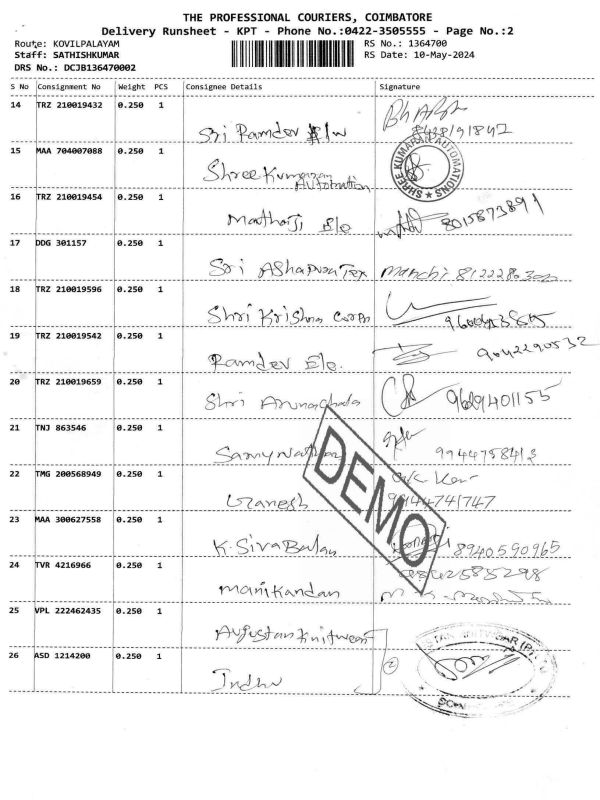 THE PROFESSIONAL COURIERS, COIMBATORE
Delivery Runsheet - KPT - Phone No.:0422-3505555 - Page No.:2
Route: KOVILPALAYAM RS No.: 1364700
Staff: SATHISHKUMAR RS Date: 10-May-2024
DRS No.: DCJB136470002
S No Consignment No Weight PCS Consignee Details Signature
14 TRZ 210019432 0.250 1
Sri Ramdev
15 MAA 704007088 0.250 1
Shree Kumaran Automation
SHREE KUMARAN AUTOMATIONS
16 TRZ 210019454 0.250 1
Mathaji Ele 8015873891
17 DDG 301157 0.250 1
Sri Ashapura Tex
18 TRZ 210019596 0.250 1
Shri Krishna Corpn
19 TRZ 210019542 0.250 1
Ramdev Ele. 9042290532
20 TRZ 210019659 0.250 1
Shri
21 TNJ 863546 0.250 1
9944758413
DEMO
22 TMG 200568949 0.250 1
Ganesh 9944741747
23 MAA 300627558 0.250 1
K. Siva Balan 8940590965
24 TVR 4216966 0.250 1
Manikandan
25 VPL 222462435 0.250 1
26 ASD 1214200 0.250 1
Indhu